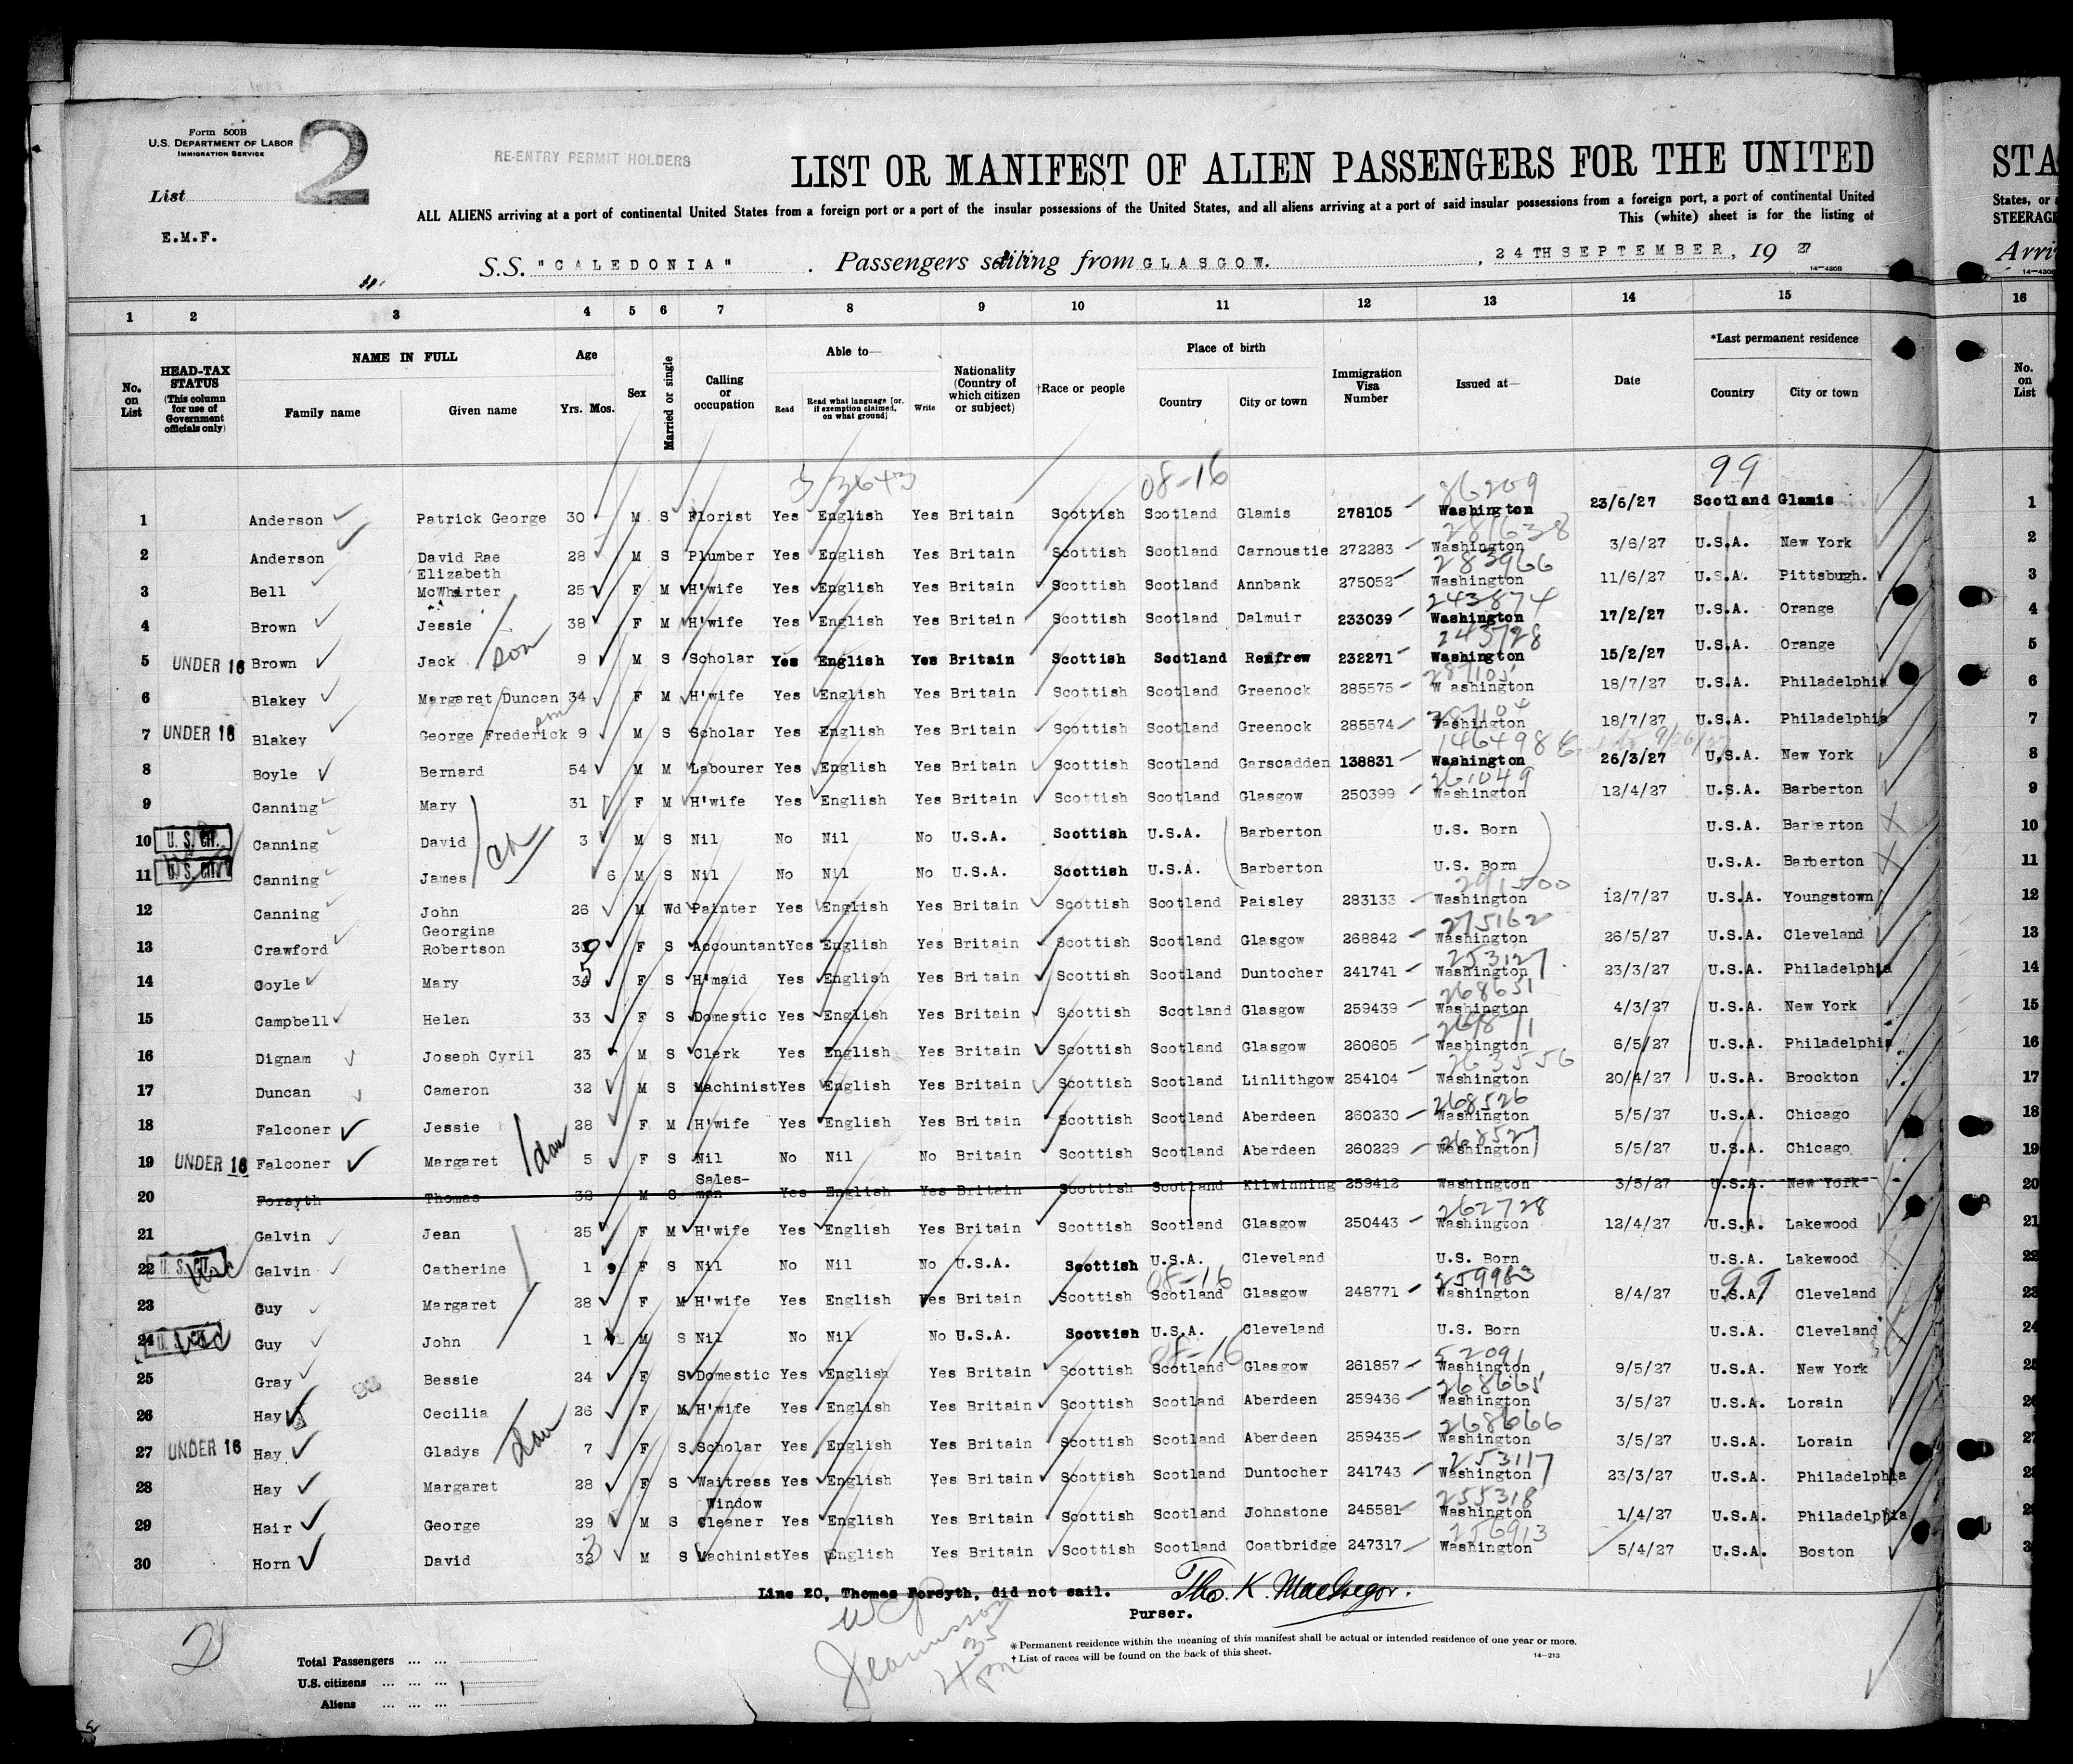 Form 500B
U.S. DEPARTMENT OF LABOR
IMMIGRATION SERVICE
2
RE-ENTRY PERMIT HOLDERS
LIST OR MANIFEST OF ALIEN PASSENGERS FOR THE UNITED
STA
List
ALL ALIENS arriving at a port of continental United States from a foreign port or a port of the insular possessions of the United States, and all aliens arriving at a port of said insular possessions from a foreign port, a port of continental United
States, or
This (white) sheet is for the listing of
STEERAGE
E.M.F.
S.S. "CALEDONIA" . Passengers sailing from GLASGOW. , 24TH SEPTEMBER, 19 27
Arri
14-4308
1 2 3 4 5 6 7 8 9 10 11 12 13 14 15 16
No. on List
HEAD-TAX STATUS (This column for use of Government officials only)
NAME IN FULL
Family name Given name
Age
Yrs. Mos.
Sex
Married or single
Calling or occupation
Able to—
Read Read what language [or, if exemption claimed, on what ground] Write
Nationality (Country of which citizen or subject)
†Race or people
Place of birth
Country City or town
Immigration Visa Number
Issued at—
Date
*Last permanent residence
Country City or town
No. on List
3 3643 08-16 86209 99
1 Anderson Patrick George 30 M S Florist Yes English Yes Britain Scottish Scotland Glamis 278105 Washington 23/6/27 Scotland Glamis 1
281638
2 Anderson David Rae 28 M S Plumber Yes English Yes Britain Scottish Scotland Carnoustie 272283 Washington 3/6/27 U.S.A. New York 2
283966
3 Bell Elizabeth McWhirter 25 F M H'wife Yes English Yes Britain Scottish Scotland Annbank 275052 Washington 11/6/27 U.S.A. Pittsburgh. 3
243874
4 Brown Jessie 38 F M H'wife Yes English Yes Britain Scottish Scotland Dalmuir 233039 Washington 17/2/27 U.S.A. Orange 4
243728
5 UNDER 16 Brown Jack son 9 M S Scholar Yes English Yes Britain Scottish Scotland Renfrew 232271 Washington 15/2/27 U.S.A. Orange 5
287105
6 Blakey Margaret Duncan 34 F M H'wife Yes English Yes Britain Scottish Scotland Greenock 285575 Washington 18/7/27 U.S.A. Philadelphia 6
287104
7 UNDER 16 Blakey George Frederick son 9 M S Scholar Yes English Yes Britain Scottish Scotland Greenock 285574 Washington 18/7/27 U.S.A. Philadelphia 7
146498
8 Boyle Bernard 54 M M Labourer Yes English Yes Britain Scottish Scotland Garscadden 138831 Washington 26/3/27 U.S.A. New York 8
261049
9 Canning Mary 31 F M H'wife Yes English Yes Britain Scottish Scotland Glasgow 250399 Washington 12/4/27 U.S.A. Barberton 9
10 U.S. CIT. Canning David 3 M S Nil No Nil No U.S.A. Scottish U.S.A. Barberton U.S. Born U.S.A. Barberton 10
ch
11 U.S. CIT. Canning James 6 M S Nil No Nil No U.S.A. Scottish U.S.A. Barberton U.S. Born U.S.A. Barberton 11
291500
12 Canning John 26 M Wd Painter Yes English Yes Britain Scottish Scotland Paisley 283133 Washington 12/7/27 U.S.A. Youngstown 12
275162
13 Crawford Georgina Robertson 39 F S Accountant Yes English Yes Britain Scottish Scotland Glasgow 268842 Washington 26/5/27 U.S.A. Cleveland 13
253127
14 Coyle Mary 35 F S H'maid Yes English Yes Britain Scottish Scotland Duntocher 241741 Washington 23/3/27 U.S.A. Philadelphia 14
268631
15 Campbell Helen 33 F S Domestic Yes English Yes Britain Scottish Scotland Glasgow 259439 Washington 4/3/27 U.S.A. New York 15
16 Dignam Joseph Cyril 23 M S Clerk Yes English Yes Britain Scottish Scotland Glasgow 260605 Washington 6/5/27 U.S.A. Philadelphia 16
263556
17 Duncan Cameron 32 M S Machinist Yes English Yes Britain Scottish Scotland Linlithgow 254104 Washington 20/4/27 U.S.A. Brockton 17
268526
18 Falconer Jessie 28 F M H'wife Yes English Yes Britain Scottish Scotland Aberdeen 260230 Washington 5/5/27 U.S.A. Chicago 18
268527
19 UNDER 16 Falconer Margaret dau 5 F S Nil No Nil No Britain Scottish Scotland Aberdeen 260229 Washington 5/5/27 U.S.A. Chicago 19
20 Forsyth Thomas 32 M S Sales-man Yes English Yes Britain Scottish Scotland Kilwinning 259412 Washington 3/5/27 U.S.A. New York 20
262728
21 Galvin Jean 25 F M H'wife Yes English Yes Britain Scottish Scotland Glasgow 250443 Washington 12/4/27 U.S.A. Lakewood 21
22 U.S. CIT. Galvin Catherine 1 9 F S Nil No Nil No U.S.A. Scottish U.S.A. Cleveland U.S. Born U.S.A. Lakewood 22
08-16 259983 99
23 Guy Margaret 28 F M H'wife Yes English Yes Britain Scottish Scotland Glasgow 248771 Washington 8/4/27 U.S.A. Cleveland 23
24 U.S. CIT. Guy John 1 M S Nil No Nil No U.S.A. Scottish U.S.A. Cleveland U.S. Born U.S.A. Cleveland 24
08-16 52091
25 Gray Bessie 24 F S Domestic Yes English Yes Britain Scottish Scotland Glasgow 261857 Washington 9/5/27 U.S.A. New York 25
268665
26 Hay Cecilia 26 F M H'wife Yes English Yes Britain Scottish Scotland Aberdeen 259436 Washington 3/5/27 U.S.A. Lorain 26
268666
27 UNDER 16 Hay Gladys dau 7 F S Scholar Yes English Yes Britain Scottish Scotland Aberdeen 259435 Washington 3/5/27 U.S.A. Lorain 27
253117
28 Hay Margaret 28 F S Waitress Yes English Yes Britain Scottish Scotland Duntocher 241743 Washington 23/3/27 U.S.A. Philadelphia 28
255318
29 Hair George 29 M S Window Cleaner Yes English Yes Britain Scottish Scotland Johnstone 245581 Washington 1/4/27 U.S.A. Philadelphia 29
256913
30 Horn David 33 M S Machinist Yes English Yes Britain Scottish Scotland Coatbridge 247317 Washington 5/4/27 U.S.A. Boston 3
Line 20, Thomas Forsyth, did not sail. Tho. K. MacGregor.
Purser.
2
* Permanent residence within the meaning of this manifest shall be actual or intended residence of one year or more.
† List of races will be found on the back of this sheet.
14-213
4 35 pm
Total Passengers ... ...
U.S. citizens ... ... ...
Aliens ... ... ...